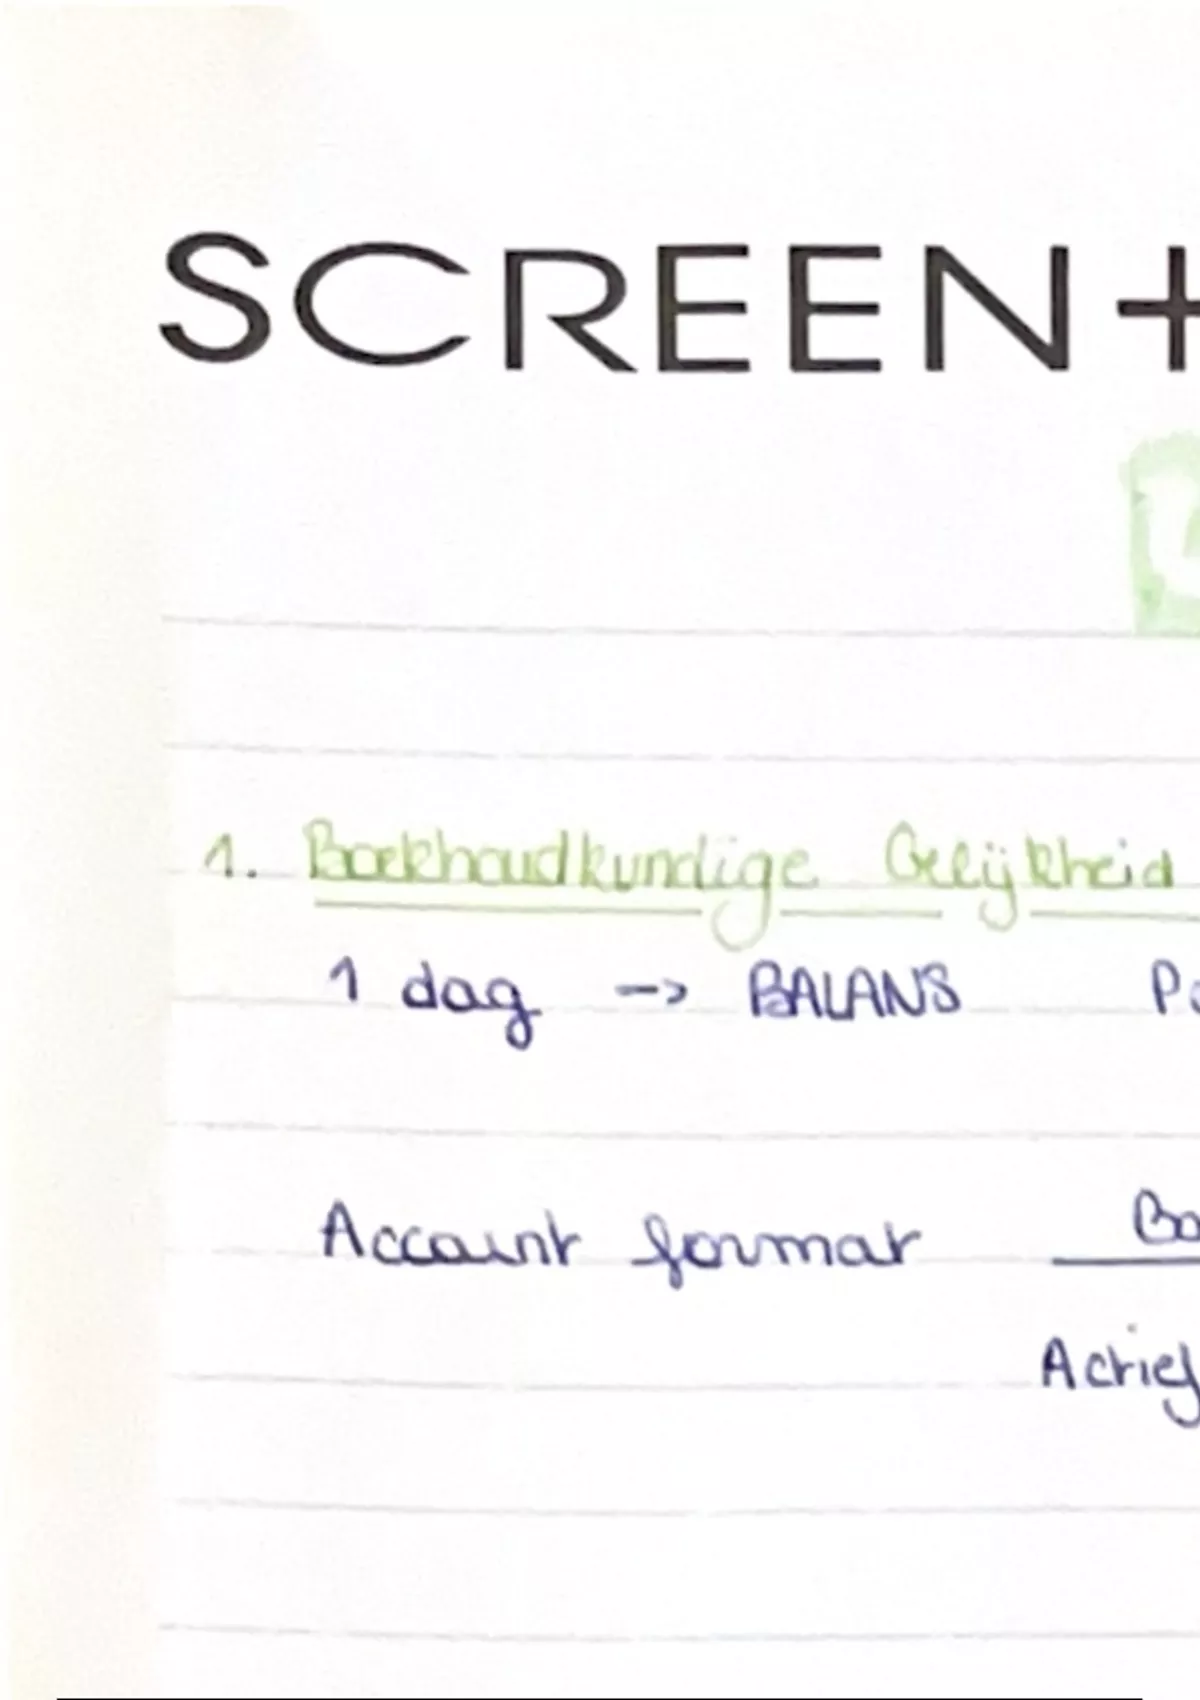 SCREEN+
1. Boekhoudkundige Gelijkheid
1 dag --> BALANS
Account format
Actief